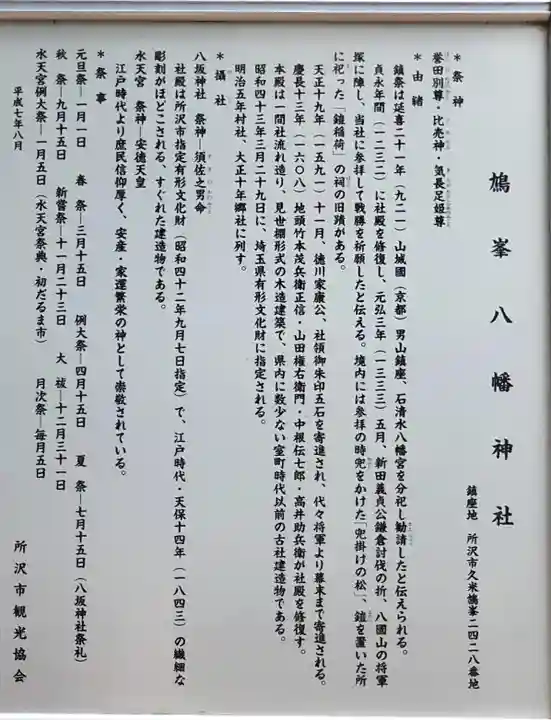 鳩峯八幡神社
鎮座地 所沢市久米鳩峯二四二八番地
＊祭神
誉田別尊・比売神・気長足姫尊
＊由緒
鎮祭は延喜二十一年（九二一）山城國（京都）男山鎮座、石清水八幡宮を分祀し勧請したと伝えられる。
貞永年間（一二三二）に社殿を修復し、元弘三年（一三三三）五月、新田義貞公鎌倉討伐の折、八國山の将軍
塚に陣し、当社に参拝して戦勝を祈願したと伝える。境内には参拝の時兜をかけた「兜掛けの松」、鎧を置いた所
に祀った「鎧稲荷」の祠の旧蹟がある。
天正十九年（一五九一）十一月、徳川家康公、社領御朱印五石を寄進され、代々将軍より幕末まで寄進される。
慶長十三年（一六〇八）地頭竹本茂兵衛正信・山田権右衛門・中根伝七郎・高井助兵衛が社殿を修復す。
本殿は一間社流れ造り、見世棚形式の木造建築で、県内に数少ない室町時代以前の古社建造物である。
昭和四十三年三月二十九日に、埼玉県有形文化財に指定される。
明治五年村社、大正十年郷社に列す。
＊摂社
八坂神社 祭神―須佐之男命
社殿は所沢市指定有形文化財（昭和四十二年九月七日指定）で、江戸時代・天保十四年（一八四三）の繊細な
彫刻がほどこされる、すぐれた建造物である。
水天宮 祭神―安徳天皇
江戸時代より庶民信仰厚く、安産・家運繁栄の神として崇敬されている。
＊祭事
元旦祭―一月一日 春祭―三月十五日 例大祭―四月十五日 夏祭―七月十五日（八坂神社祭礼）
秋祭―九月十五日 新嘗祭―十一月二十三日 大祓―十二月三十一日
水天宮例大祭―一月五日（水天宮祭典・初だるま市） 月次祭―毎月五日
平成七年八月
所沢市観光協会